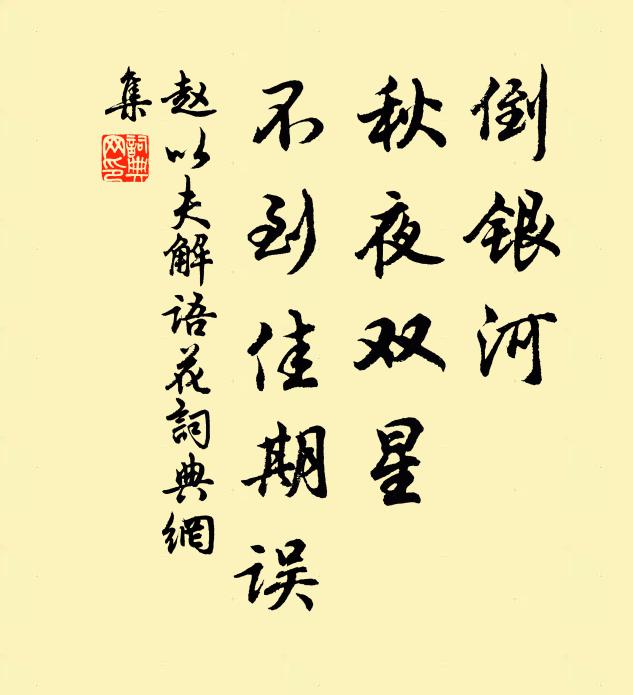 倒银河
秋夜双星
不到佳期误
赵以夫解语花詞典網
集
詞典
网印